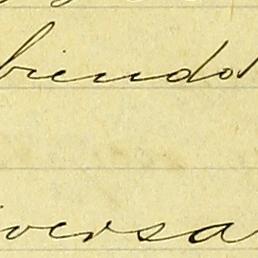 briendo
iversa